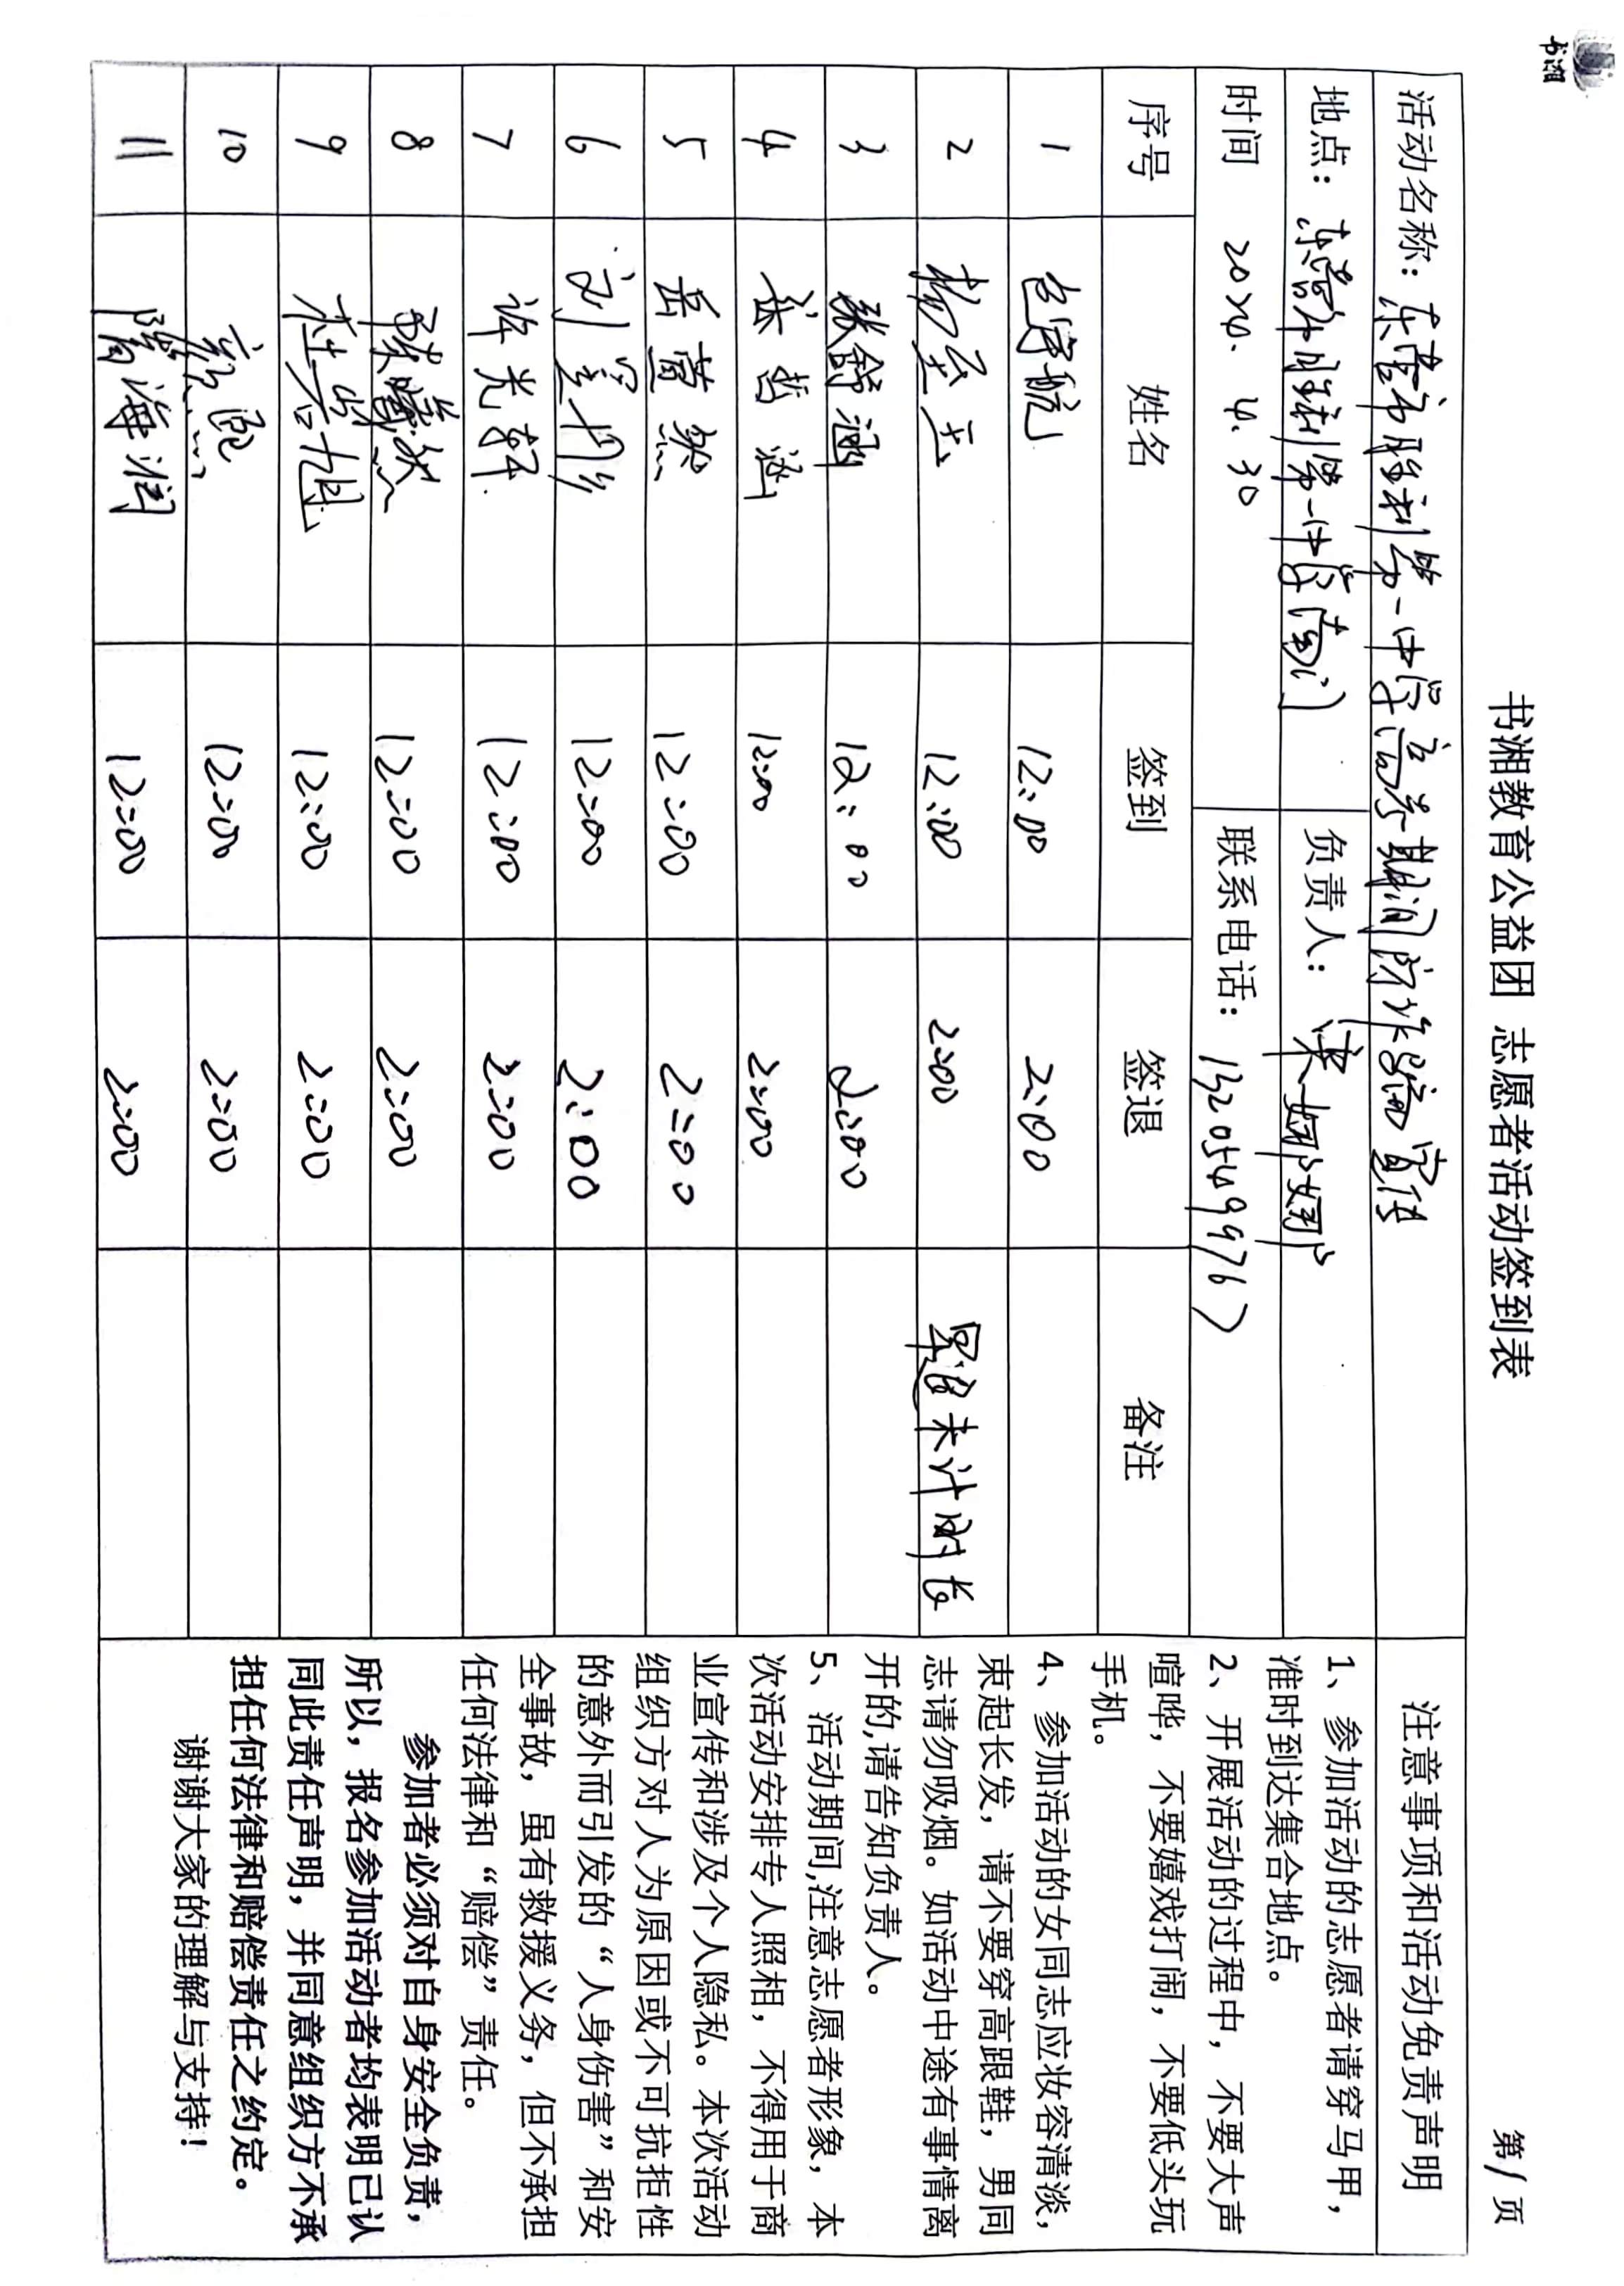 书湘
书湘教育公益团 志愿者活动签到表
第1页
活动名称：东营市胜利第一中学高考期间防诈骗宣传
地点：东营市胜利第一中学南门
负责人：娜娜
时间 2024. 4. 30
联系电话：
序号 姓名 签到 签退 备注
1 12:00 2:00
2 杨至立 12:00 2:00 早退未计时长
3 张舒涵 12:00 2:00
4 张哲涵 12:00 2:00
5 岳萱然 12:00 2:00
6 刘 12:00 2:00
7 许光轩 12:00 2:00
8 陈曦然 12:00 2:00
9 杜若旭 12:00 2:00
10 12:00 2:00
11 隋海润 12:00 2:00
注意事项和活动免责声明
1、参加活动的志愿者请穿马甲，
准时到达集合地点。
2、开展活动的过程中，不要大声
喧哗，不要嬉戏打闹，不要低头玩
手机。
4、参加活动的女同志应妆容清淡，
束起长发，请不要穿高跟鞋，男同
志请勿吸烟。如活动中途有事情离
开的,请告知负责人。
5、活动期间,注意志愿者形象，本
次活动安排专人照相，不得用于商
业宣传和涉及个人隐私。本次活动
组织方对人为原因或不可抗拒性
的意外而引发的“人身伤害”和安
全事故，虽有救援义务，但不承担
任何法律和“赔偿”责任。
参加者必须对自身安全负责，
所以，报名参加活动者均表明已认
同此责任声明，并同意组织方不承
担任何法律和赔偿责任之约定。
谢谢大家的理解与支持！